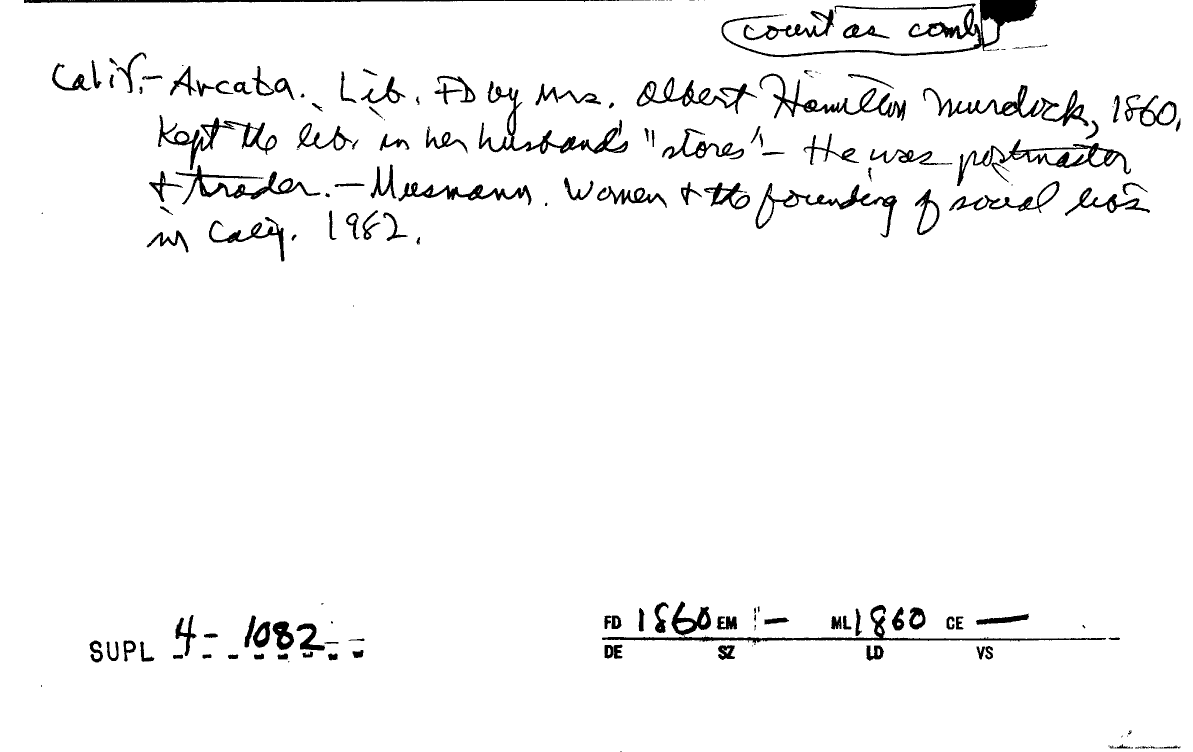 count as coml
Calif.- Arcata. Lib. FD by Mrs. Albert Hamilton Murdock, 1860.
Kept the lib. in her husband's "stores" - He was postmaster
& trader. - Musmann. Women & the founding of social libs
in Calif. 1982.
SUPL 4- 1082
FD 1860 EM - ML 1860 CE —
DE SZ LD VS